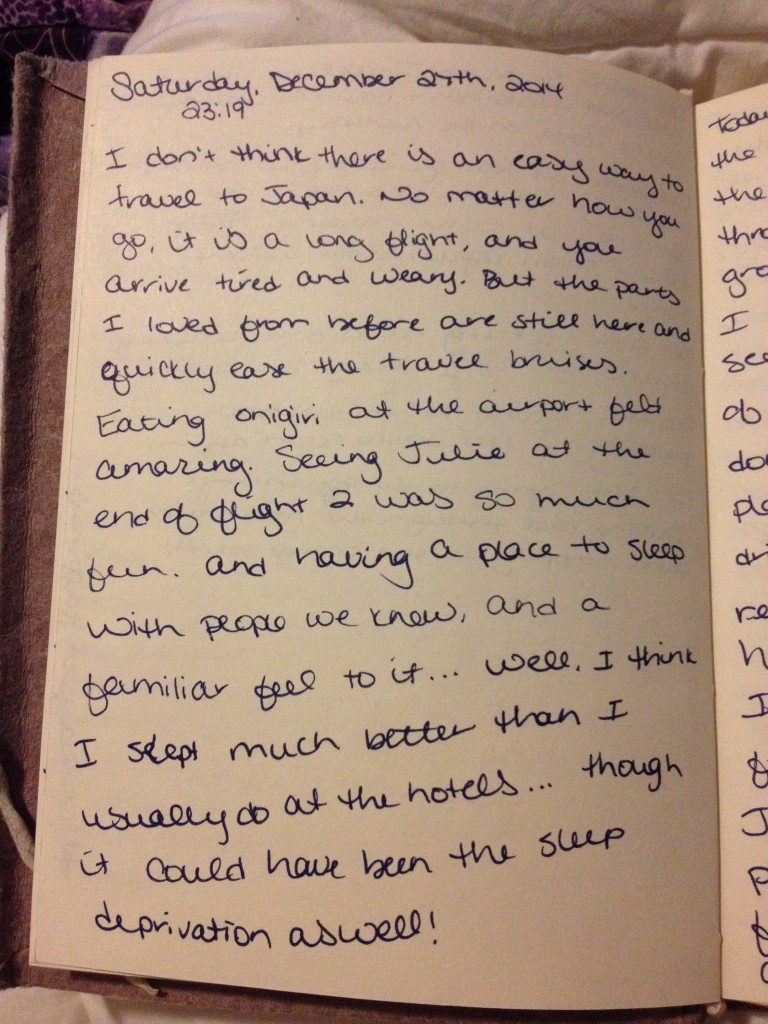 Saturday, December 27th, 2014
23:19
I don't think there is an easy way to
travel to Japan. No matter how you
go, it is a long flight, and you
arrive tired and weary. But the parts
I loved from before are still here and
quickly ease the travel bruises.
Eating onigiri at the airport felt
amazing. Seeing Julie at the
end of flight 2 was so much
fun. And having a place to sleep
with people we know, and a
familiar feel to it... well, I think
I slept much better than I
usually do at the hotels... though
it could have been the sleep
deprivation aswell!
Today
the
the
I
I